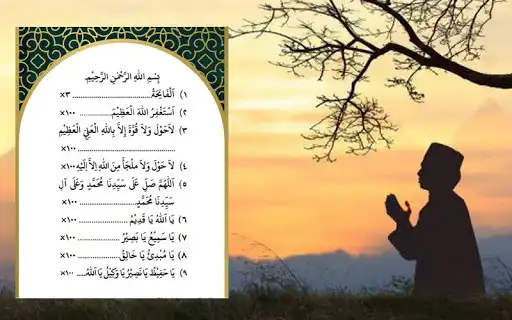 بِسْمِ اللهِ الرَّحْمٰنِ الرَّحِيْمِ
١) اَلْفَاتِحَةُ .................................. ×٣
٢) اَسْتَغْفِرُ اللهَ الْعَظِيْمَ .................. ×١٠٠
٣) لاَحَوْلَ وَلاَ قُوَّةَ إِلاَّ بِاللهِ الْعَلِيِّ الْعَظِيْمِ
.................................. ×١٠٠
٤) لاَ حَوْلَ وَلاَ مَلْجَأَ مِنَ اللهِ إِلاَّ إِلَيْهِ ×١٠٠
٥) اَللّٰهُمَّ صَلِّ عَلَى سَيِّدِنَا مُحَمَّدٍ وَعَلَى آلِ
سَيِّدِنَا مُحَمَّدٍ .................. ×١٠٠
٦) يَا اَللهُ يَا قَدِيْمُ .................. ×١٠٠
٧) يَا سَمِيْعُ يَا بَصِيْرُ .................. ×١٠٠
٨) يَا مُبْدِئُ يَا خَالِقُ .................. ×١٠٠
٩) يَا حَفِيْظُ يَا نَصِيْرُ يَا وَكِيْلُ يَا اَللهُ .... ×١٠٠